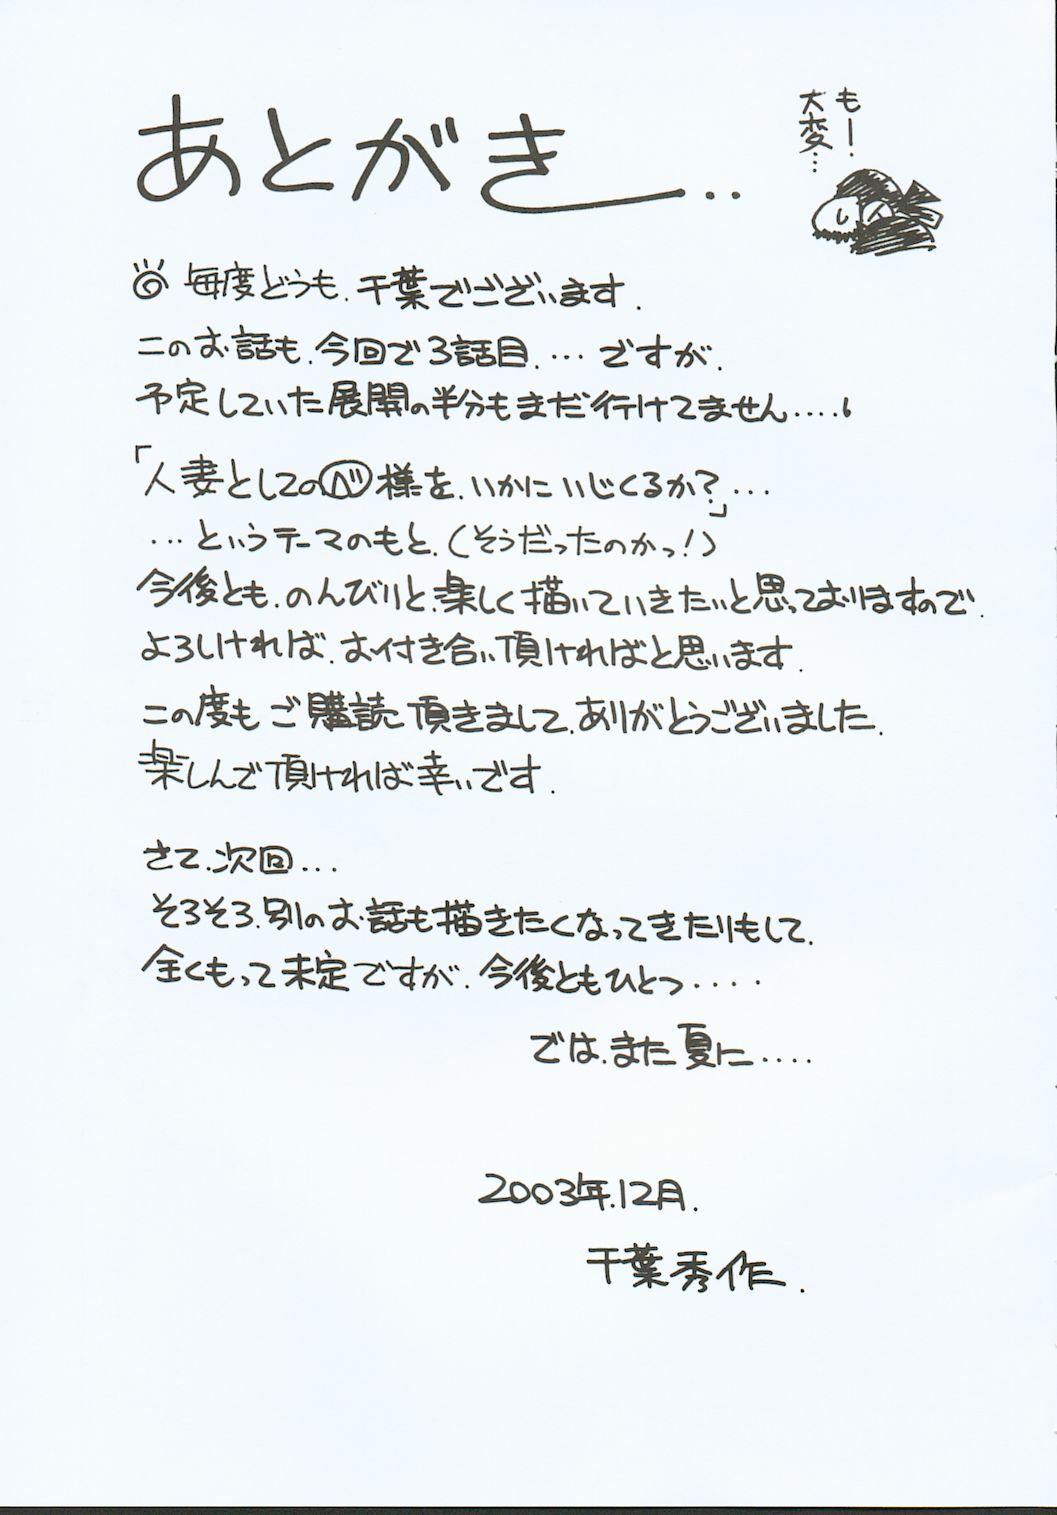 あとがき..
もー!
大変…
◎ 毎度どうも、千葉でございます.
このお話も、今回で3話目、…ですが、
予定していた展開の半分もまだ行けてません....
「人妻としてのベ様を、いかにいじくるか?…」
…というテーマのもと、(そうだったのかっ!)
今後とも、のんびりと、楽しく描いていきたいと思っておりますので、
よろしければ、お付き合い頂ければと思います.
この度もご購読頂きまして、ありがとうございました.
楽しんで頂ければ幸いです.
さて、次回...
そろそろ、別のお話も描きたくなってきたりもして、
全くもって未定ですが、今後ともひとつ....
では、また夏に....
2003年.12月.
千葉秀作.